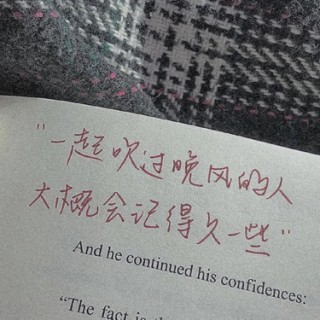 "一起吹过晚风的人
大概会记得久一些"
And he continued his confidences:
"The fact is